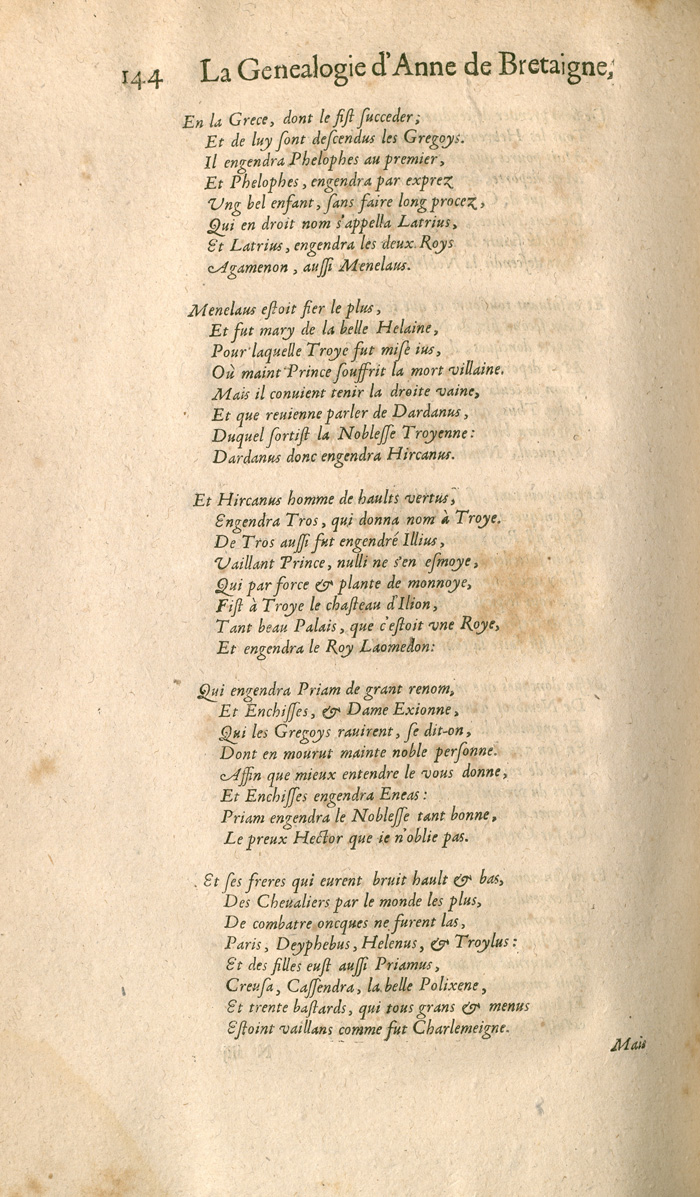 144 La Genealogie d'Anne de Bretaigne,
En la Grece, dont le fiſt ſucceder;
Et de luy ſont deſcendus les Gregoys.
Il engendra Phelophes au premier,
Et Phelophes, engendra par exprez
Vng bel enfant, ſans faire long procez,
Qui en droit nom s'appella Latrius,
Et Latrius, engendra les deux Roys
Agamenon, auſſi Menelaus.
Menelaus eſtoit fier le plus,
Et fut mary de la belle Helaine,
Pour laquelle Troye fut miſe ius,
Où maint Prince ſouffrit la mort villaine.
Mais il conuient tenir la droite vaine,
Et que reuienne parler de Dardanus,
Duquel ſortiſt la Nobleſſe Troyenne:
Dardanus donc engendra Hircanus.
Et Hircanus homme de haults vertus,
Engendra Tros, qui donna nom à Troye.
De Tros auſſi fut engendré Illius,
Vaillant Prince, nulli ne s'en eſmoye,
Qui par force & plante de monnoye,
Fiſt à Troye le chaſteau d'Ilion,
Tant beau Palais, que c'eſtoit vne Roye,
Et engendra le Roy Laomedon:
Qui engendra Priam de grant renom,
Et Enchiſſes, & Dame Exionne,
Qui les Gregoys rauirent, ſe dit-on,
Dont en mourut mainte noble perſonne.
Affin que mieux entendre le vous donne,
Et Enchiſſes engendra Eneas:
Priam engendra le Nobleſſe tant bonne,
Le preux Hector que ie n'oblie pas.
Et ſes freres qui eurent bruit hault & bas,
Des Cheualiers par le monde les plus,
De combatre oncques ne furent las,
Paris, Deyphebus, Helenus, & Troylus:
Et des filles euſt auſſi Priamus,
Creuſa, Caſſendra, la belle Polixene,
Et trente baſtards, qui tous grans & menus
Eſtoint vaillans comme fut Charlemeigne.
Mais